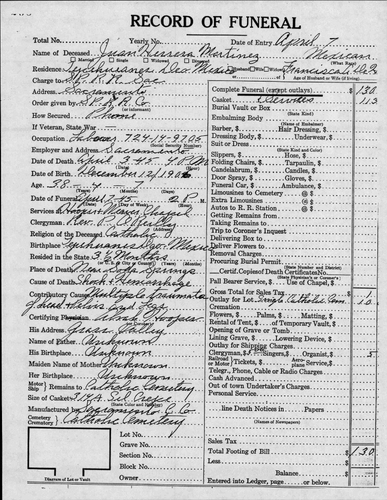 RECORD OF FUNERAL
Total No. Yearly No. Date of Entry April 7
Name of Deceased Juan Herrera Martinez Mexican
Married Single (What Race)
Residence Divorced Widowed Wife Widow of
Charge to
Address Sacramento
Order given by S.P.R.R. Co. (If Informant)
How Secured Phone
If Veteran, State War
Occupation Laborer 724-14-9705
(Social Security Number)
Employer and Address Sacramento
Date of Death April 3-45
Date of Birth December 12, 1906
Age 38 - 4
Date of Funeral April 7
Services at Hooper Weaver Chapel
Clergyman Rev. P.
Religion of the Deceased Catholic
Birthplace
Resided in the State 3 1/2 Months
Place of Death Near Soda Springs
Cause of Death Shock & Hemorrhage
Contributory Cause Multiple
Certifying Physician
His Address Grass Valley
Name of Father Unknown
His Birthplace Unknown
Maiden Name of Mother Unknown
Her Birthplace Unknown
Motor Ship Remains to Catholic Cemetery
Size, Style of Casket
(State Color and Number)
Manufactured by Sacramento C. Co.
Cemetery Crematory Catholic Cemetery
Lot No.
Grave No.
Section No.
Block No.
Owner
Diagram of Lot or Vault
Complete Funeral (except outlays) $ 130
Casket Services 113
Burial Vault or Box
(State Kind)
Embalming Body
(Name of Embalmer)
Barber, $ Hair Dressing, $
Dressing Body, $ Underwear, $
Suit or Dress
(State Kind and Color)
Slippers, $ Hose, $
Folding Chairs, $ Tarpaulin, $
Candelabrum, $ Candles, $
Door Spray, $ Gloves, $
Funeral Car, $ Ambulance, $
Limousines to Cemetery @ $
Extra Limousines @ $
Autos to R. R. Station @ $
Getting Remains from
Taking Remains to
Trip to Coroner's Inquest
Delivering Box to
Deliver Flowers to
Removal Charge
Procuring Burial Permit
(State Number and District)
Certif. Copies of Death Certificates No.
(State Physician's or Coroner's)
Pall Bearer Service, $ Use of Chapel, $
Gross Total for Sales Tax
Outlay for Lot, Single Catholic Cem. 10
Cremation
Flowers, $ Palms, $ Matting, $
Rental of Tent, $ of Temporary Vault, $
Opening of Grave or Tomb
Lining Grave, $ Lowering Device, $
Outlay for Shipping Charges
Clergyman, $ Singers, $ Organist, $ 5
Railroad Motor Tickets, $ Aeroplane Service, $
Telegr., Phone, Cable or Radio Charges
Cash Advanced
Out of town Undertaker's Charges
Personal Service
line Death Notices in Papers
(Names of Newspapers)
Sales Tax
Total Footing of Bill $ 130
Less
Balance
Entered into Ledger, page or below.